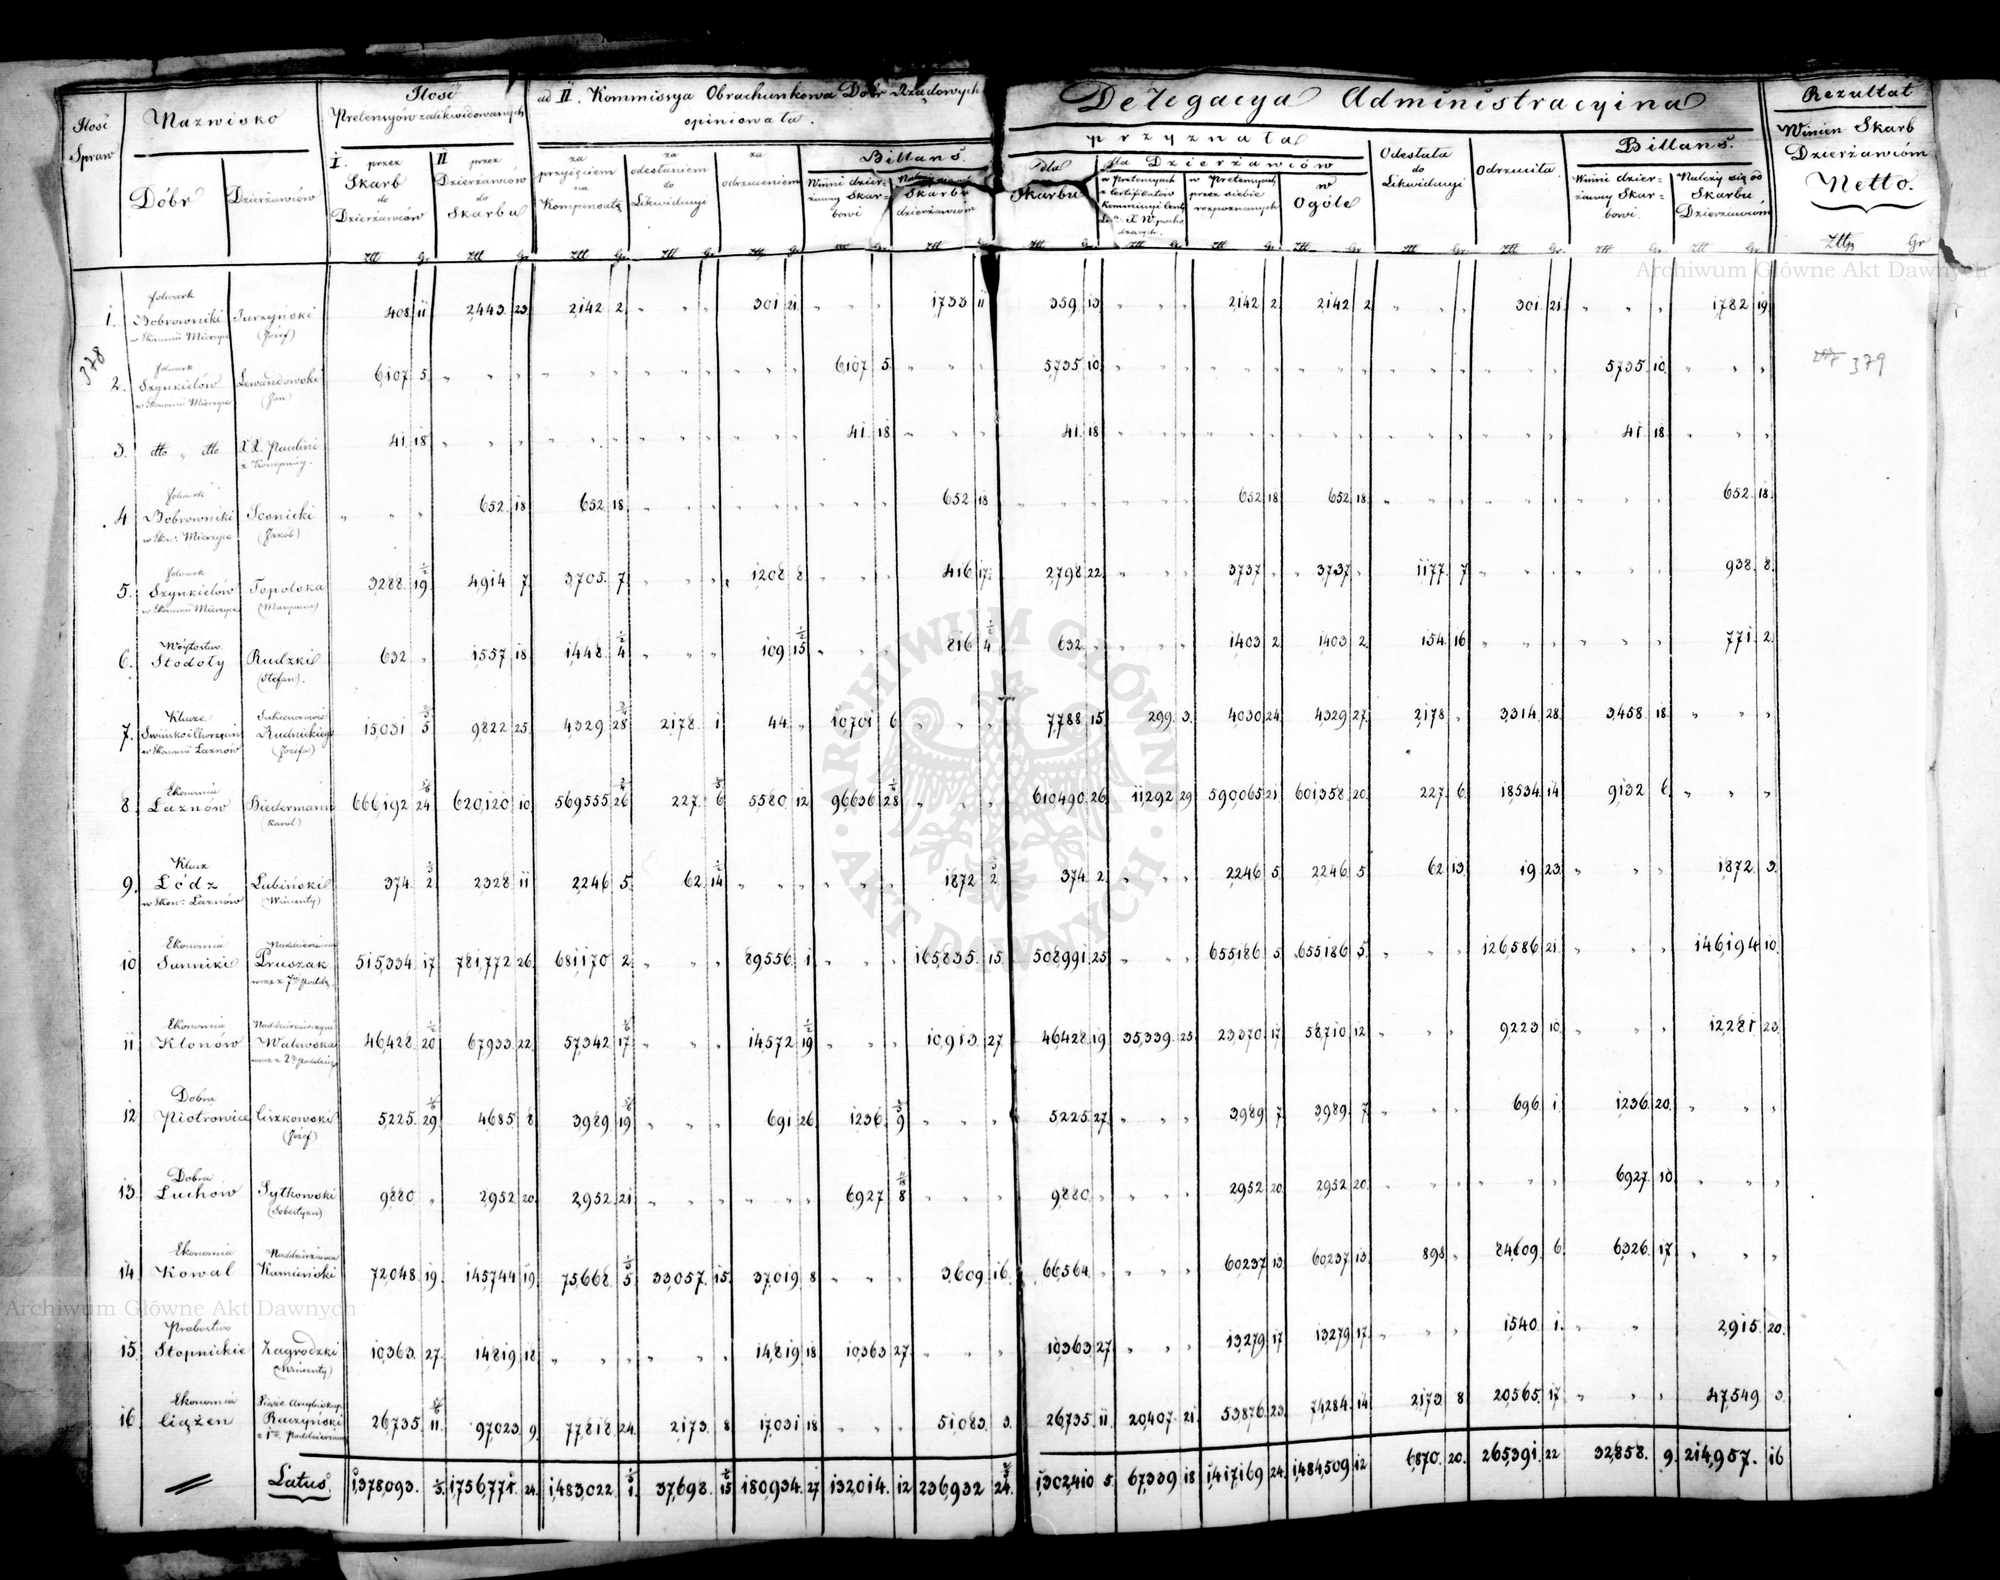 Ilość Spraw | Nazwisko | Ilość Pretensyów zalikwidowanych | ad II. Kommissya Obrachunkowa Dóbr Rządowych opiniowała. | Delegacya Administracyina przyznała | Rezultat
Dóbr | Dzierżawców | I. przez Skarb do Dzierżawców | II przez Dzierżawców do Skarbu | za przyięciem na Kompensatę | za odesłaniem do Likwidacyi | za odrzuceniem | Billans. Winni dzierżawcy Skarbowi | Należy się od Skarbu dzierżawcom | dla Skarbu | dla Dzierżawców | w Pretensyach przez siebie rozpoznanych | w Ogóle | Odesłała do Likwidacyi | Odrzuciła | Billans. Winni dzierżawcy Skarbowi. | Należy się od Skarbu Dzierżawcom | Winien Skarb Dzierżawcom Netto.
Archiwum Główne Akt Dawnych
1. | folwark Bobrowniki w Ekonomii Mierzyce | Jurzyński (Józef) | 408 11 | 2443 23 | 2142 2 | " | 301 21 | " | 1733 11 | 359 13 | " | 2142 2 | 2142 2 | " | 301 21 | " | 1782 19
378
2. | folwark Szynkielów w Ekonomii Mierzyce | Lewandowski (Jan) | 6107 5 | " | " | " | " | 6107 5 | " | 5735 10 | " | " | " | " | " | 5735 10 | "
379
3. | dtto " dtto | XX. Paulini z Konopnicy. | 41 18 | " | " | " | " | 41 18 | " | 41 18 | " | " | " | " | " | 41 18 | "
4 | folwark Bobrowniki w Ekon: Mierzyce | (Jakób) | " | 652 18 | 652 18 | " | " | " | 652 18 | " | " | 652 18 | 652 18 | " | " | " | 652 18
5. | folwark Szynkielów w Ekonomii Mierzyce | Topolska (Maryanna) | 3288 19 1/2 | 4914 7 | 3705 7 | " | 1208 8 | " | 416 17 | 2798 22 | " | 3737 " | 3737 " | 1177 7 | " | " | 938 8
6. | Wóytostwo Stodoły | Rudzki (Stefan). | 632 " | 1557 18 | 1448 4 1/2 | " | 109 15 1/2 | " | 816 4 1/2 | 632 " | " | 1403 2 | 1403 2 | 154 16 | " | " | 771 2
7. | Klucze w Ekonomii Łaznów | Sukcessorowie Rudnickiego (Józefa) | 15031 5 | 9822 25 | 4329 28 | 2178 1 | 44 " | 10701 6 | " | 7788 15 | 299 3 | 4030 24 | 4329 27 | 2178 " | 3314 28 | 3458 18 | "
8. | Ekonomia Łaznów | Biedermann (Karol) | 666192 24 | 620120 10 | 569555 26 | 227 6 | 5580 12 | 96636 28 | " | 610490 26 | 11292 29 | 590065 21 | 601358 20 | 227 6 | 18534 14 | 9132 6 | "
9. | Klucz Łódz w Ekon: Łaznów | Lubiński (Wincenty) | 374 2 | 2328 11 | 2246 5 | 62 14 | " | " | 1872 2 | 374 2 | " | 2246 5 | 2246 5 | 62 13 | 19 23 | " | 1872 3
10 | Ekonomia Sanniki | Naddzierżawca Pruszak wraz z 7miu poddz. | 515334 17 | 781772 26 | 681170 2 | " | 89556 1 | " | 165835 15 | 508991 25 | " | 655186 5 | 655186 5 | " | 126586 21 | " | 146194 10
11 | Ekonomia Klonów | Walewska | 46428 20 1/2 | 67933 22 | 57342 17 | " | 14572 19 1/2 | " | 10913 27 | 46428 19 | 35339 25 | 23370 17 | 58710 12 | " | 9223 10 | " | 12281 23
12 | Dobra Piotrowice | Ciszkowski (Józef) | 5225 29 | 4685 8 | 3989 19 | " | 691 26 | 1236 9 | " | 5225 27 | " | 3989 7 | 3989 7 | " | 696 1 | 1236 20 | "
13. | Dobra Łuchów | Sytkowski (Sebestyan) | 9880 " | 2952 20 | 2952 21 | " | " | 6927 8 | " | 9880 " | " | 2952 20 | 2952 20 | " | " | 6927 10 | "
14 | Ekonomia Kowal | Naddzierżawca Kamieński | 72048 19 | 145744 19 | 75668 5 | 33057 15 | 37019 8 | " | 3609 16 | 66564 " | " | 60237 13 | 60237 13 | 898 " | 84609 6 | 6326 17 | "
Archiwum Główne Akt Dawnych
15. | Probostwo Stopnickie | Zagrodzki (Wincenty) | 10363 27 | 14819 18 | " | " | 14819 18 | 10363 27 | " | 10363 27 | " | 13279 17 | 13279 17 | " | 1540 1 | " | 2915 20
16. | Ekonomia Ciążen | Xiąże Arcybiskup Raczyński | 26735 11 | 97023 9 | 77818 24 | 2173 8 | 17031 18 | " | 51083 3 | 26735 11 | 20407 21 | 53876 23 | 74284 14 | 2173 8 | 20565 17 | " | 47549 3
Latus. | 1378093 | 1756771 24 | 1483022 1 | 37698 15 | 180934 27 | 132014 12 | 236932 24 | 1302410 5 | 67339 18 | 1417169 24 | 1484509 12 | 6870 20 | 265391 22 | 32858 9 | 214957 16
ARCHIWUM GŁÓWNE AKT DAWNYCH